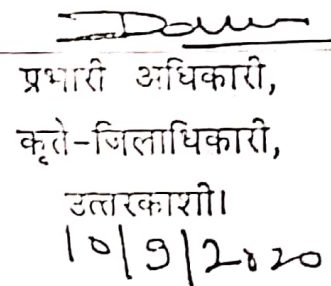 प्रभारी अधिकारी,
कृते-जिलाधिकारी,
उत्तरकाशी।
10/9/2020